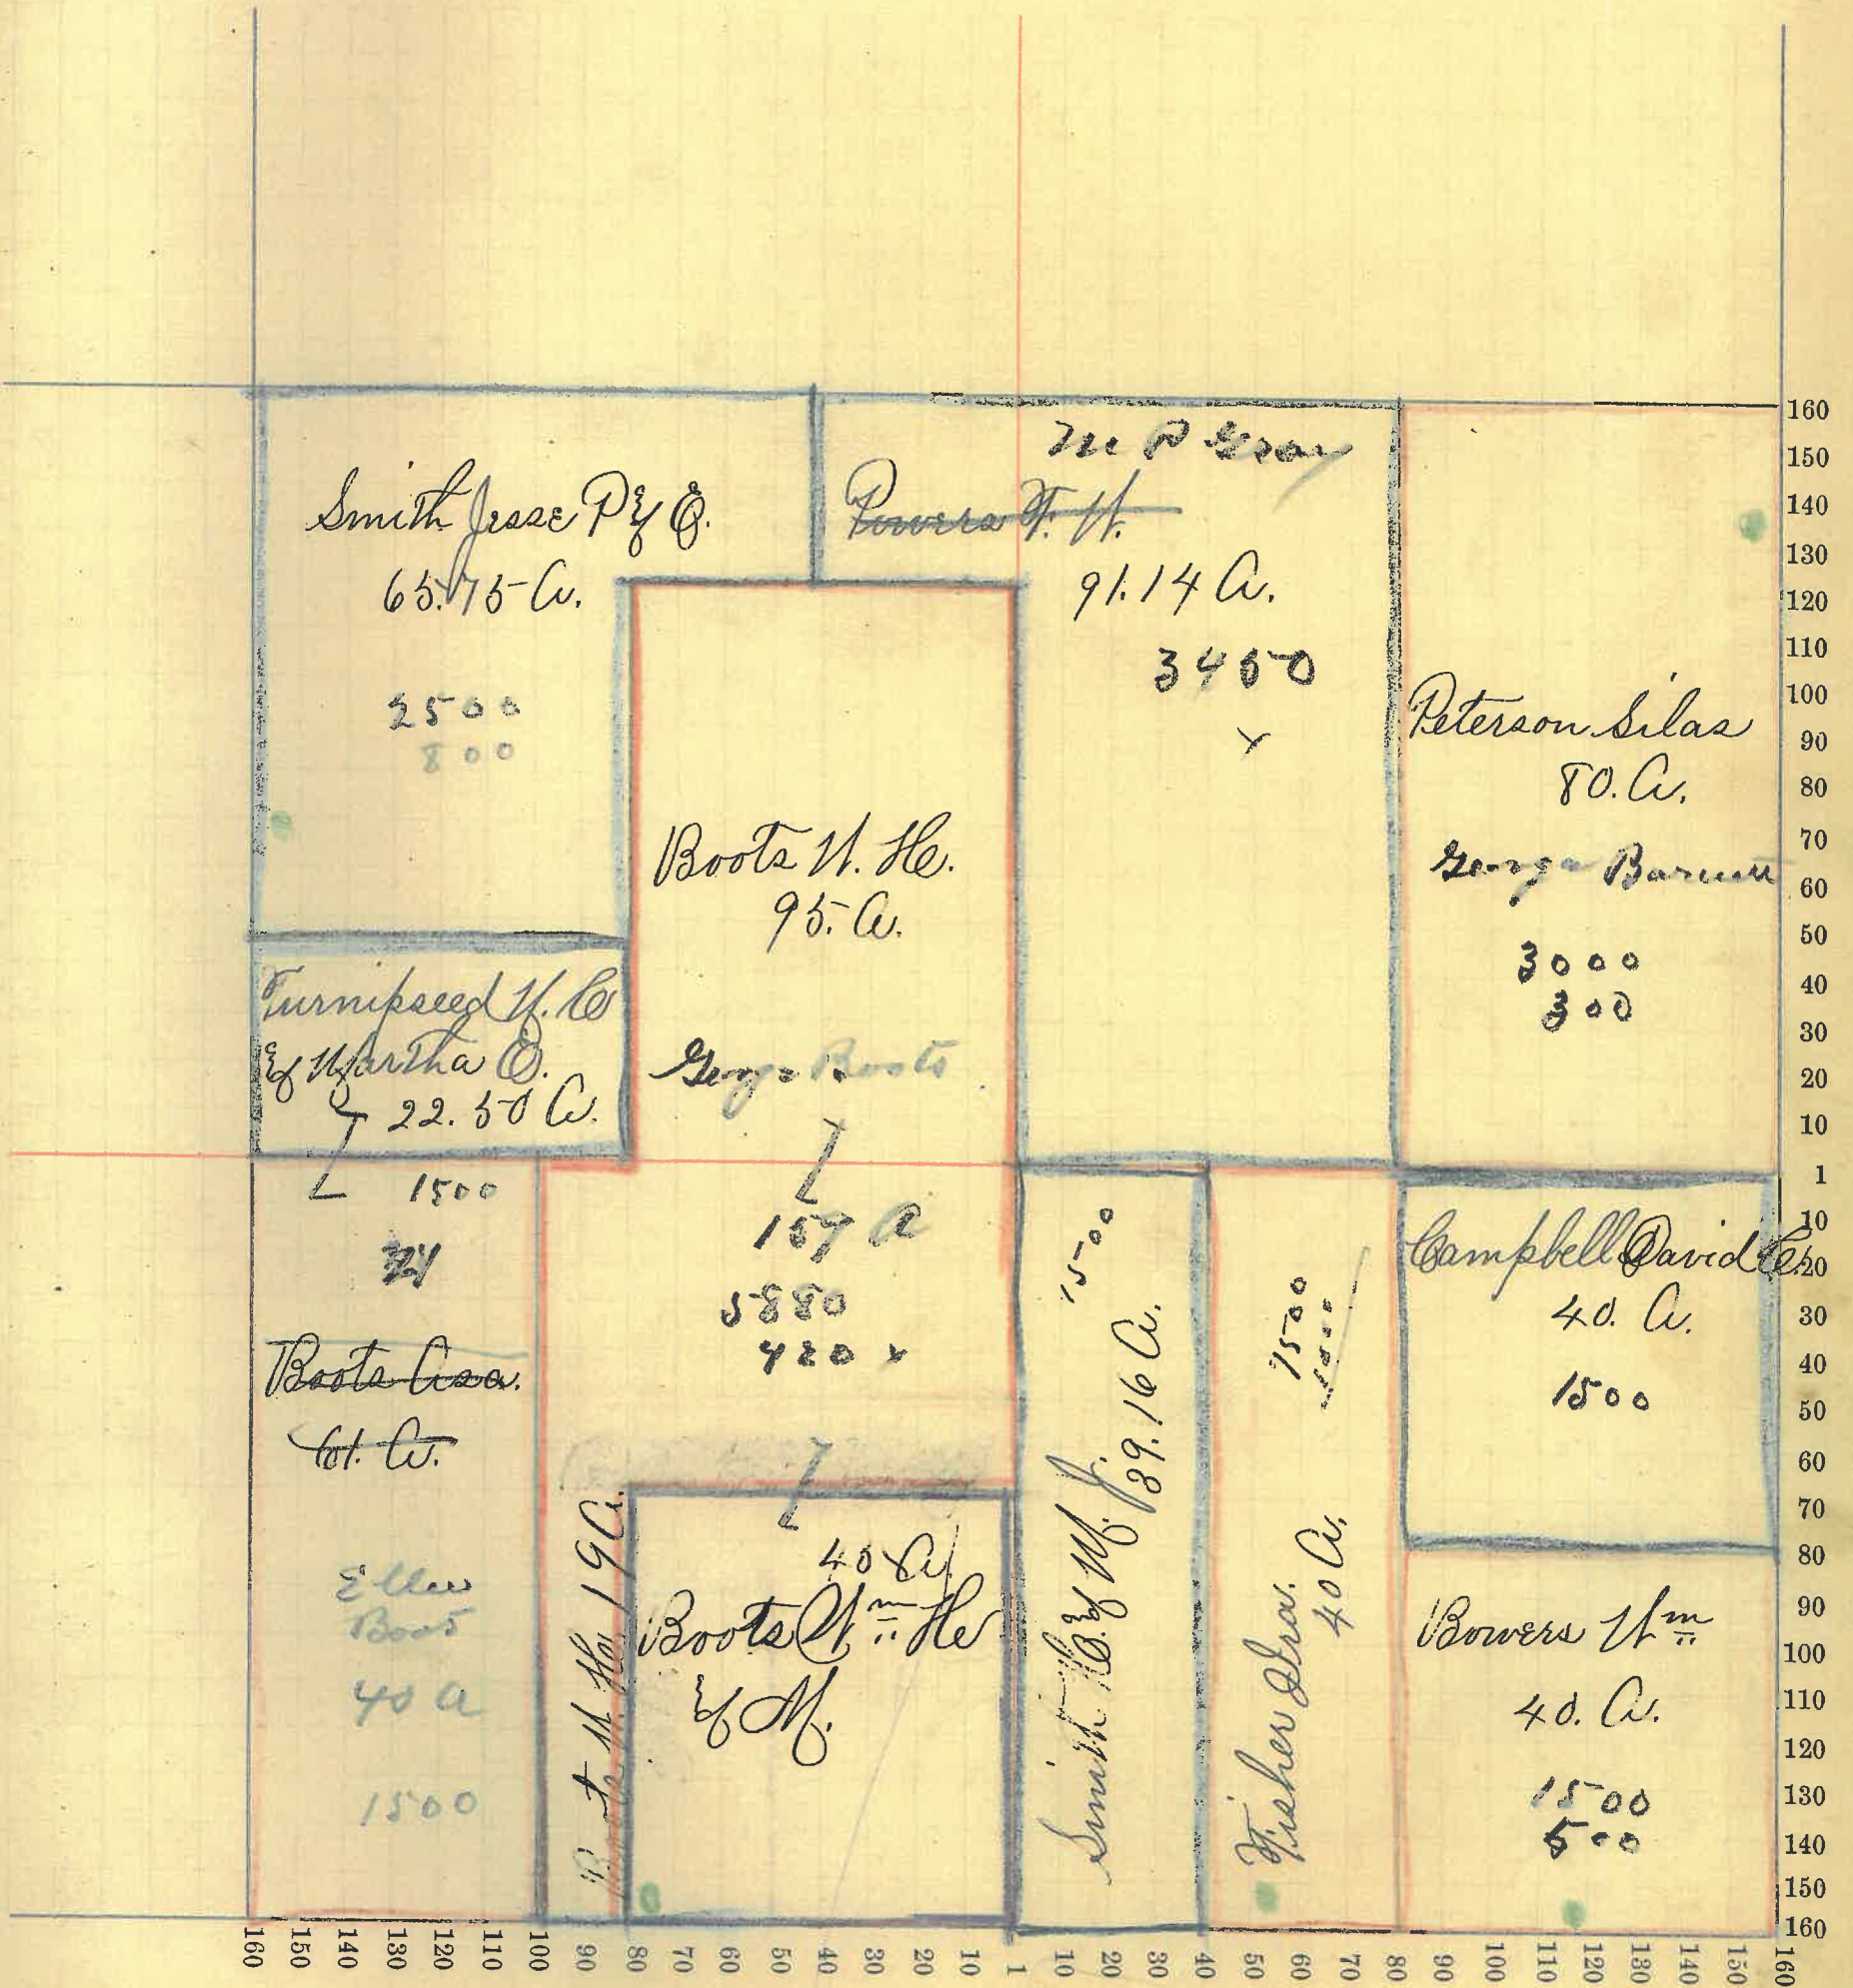 Smith Jesse P & E.
65.75 A.
2500
800
M P Gray
Powers F. W.
91.14 A.
3450
x
Peterson Silas
80. A.
George Barnett
3000
300
Boots W. H.
95. A.
George Boots
157 A
5880
420 x
Turnipseed W. C
& Martha E.
22.50 A.
1500
Boots Asa.
61. A.
Ellen
Boot
40 a
1500
Boots W. H. 19 A.
40 A.
Boots Wm H
& M.
Smith E. & M. J. 39.16 A.
1500
Fisher Ira.
40 A.
1500
Campbell David C.
40. A.
1500
Bowers Wm
40. A.
1500
500
160
150
140
130
120
110
100
90
80
70
60
50
40
30
20
10
1
10
20
30
40
50
60
70
80
90
100
110
120
130
140
150
160
160 150 140 130 120 110 100 90 80 70 60 50 40 30 20 10 1 10 20 30 40 50 60 70 80 90 100 110 120 130 140 150 160